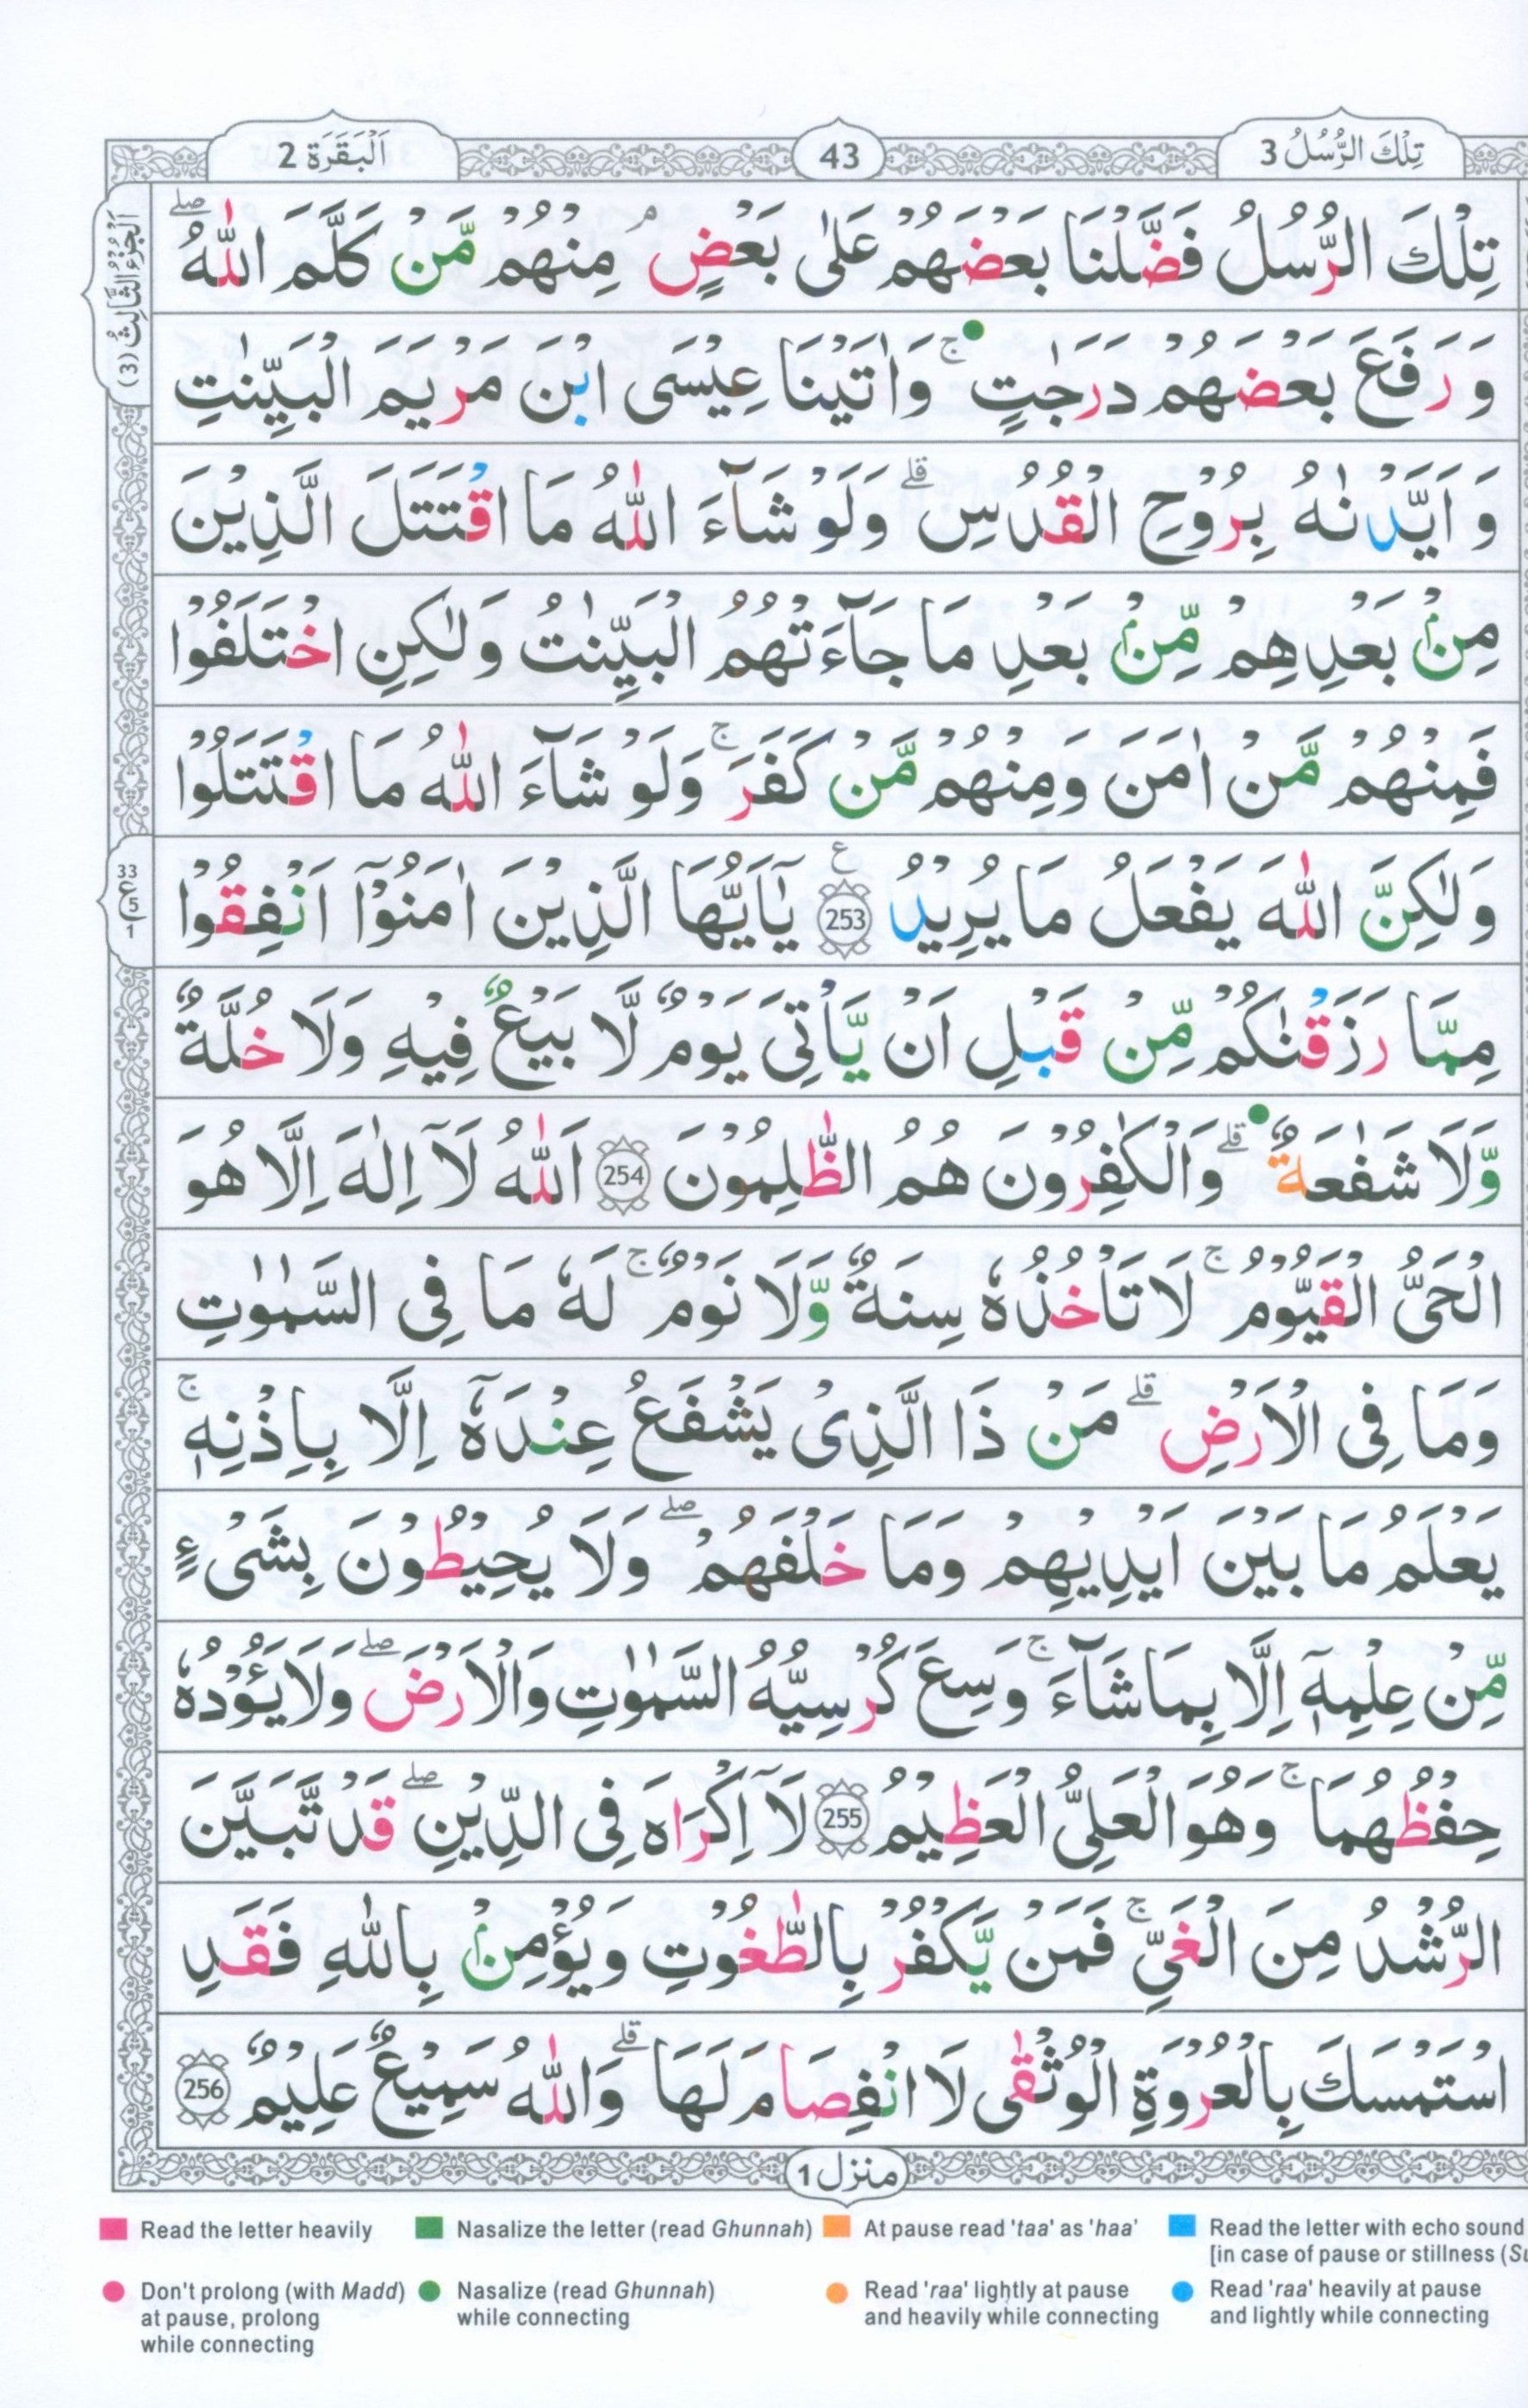 تِلْكَ الرُّسُلُ 3
43
اَلْبَقَرَة 2
اَلْجُزْءُ الثَّالِثُ (3)
تِلْكَ الرُّسُلُ فَضَّلْنَا بَعْضَهُمْ عَلٰى بَعْضٍ ۘ مِنْهُمْ مَّنْ كَلَّمَ اللّٰهُ ۖ
وَ رَفَعَ بَعْضَهُمْ دَرَجٰتٍ ۚ وَاٰتَيْنَا عِيْسَى ابْنَ مَرْيَمَ الْبَيِّنٰتِ
وَ اَيَّدْنٰهُ بِرُوْحِ الْقُدُسِ ۗ وَلَوْ شَآءَ اللّٰهُ مَا اقْتَتَلَ الَّذِيْنَ
مِنْۢ بَعْدِهِمْ مِّنْۢ بَعْدِ مَا جَآءَتْهُمُ الْبَيِّنٰتُ وَلٰكِنِ اخْتَلَفُوْا
فَمِنْهُمْ مَّنْ اٰمَنَ وَمِنْهُمْ مَّنْ كَفَرَ ۚ وَلَوْ شَآءَ اللّٰهُ مَا اقْتَتَلُوْا
وَلٰكِنَّ اللّٰهَ يَفْعَلُ مَا يُرِيْدُ ع 253 يٰٓاَيُّهَا الَّذِيْنَ اٰمَنُوْٓا اَنْفِقُوْا
33
ع
5
1
مِمَّا رَزَقْنٰكُمْ مِّنْ قَبْلِ اَنْ يَّاْتِىَ يَوْمٌ لَّا بَيْعٌ فِيْهِ وَلَا خُلَّةٌ
وَّلَا شَفٰعَةٌ ۗ وَالْكٰفِرُوْنَ هُمُ الظّٰلِمُوْنَ 254 اَللّٰهُ لَآ اِلٰهَ اِلَّا هُوَ
الْحَىُّ الْقَيُّوْمُ ۚ لَا تَاْخُذُهٗ سِنَةٌ وَّلَا نَوْمٌ ۚ لَهٗ مَا فِى السَّمٰوٰتِ
وَمَا فِى الْاَرْضِ ۗ مَنْ ذَا الَّذِىْ يَشْفَعُ عِنْدَهٗٓ اِلَّا بِاِذْنِهٖ ۚ
يَعْلَمُ مَا بَيْنَ اَيْدِيْهِمْ وَمَا خَلْفَهُمْ ۖ وَلَا يُحِيْطُوْنَ بِشَىْءٍ
مِّنْ عِلْمِهٖٓ اِلَّا بِمَا شَآءَ ۚ وَسِعَ كُرْسِيُّهُ السَّمٰوٰتِ وَالْاَرْضَ ۖ وَلَا يَـُٔوْدُهٗ
حِفْظُهُمَا ۚ وَهُوَ الْعَلِىُّ الْعَظِيْمُ 255 لَآ اِكْرَاهَ فِى الدِّيْنِ ۖ قَدْ تَّبَيَّنَ
الرُّشْدُ مِنَ الْغَىِّ ۚ فَمَنْ يَّكْفُرْ بِالطّٰغُوْتِ وَيُؤْمِنْۢ بِاللّٰهِ فَقَدِ
اسْتَمْسَكَ بِالْعُرْوَةِ الْوُثْقٰى لَا انْفِصَامَ لَهَا ۗ وَاللّٰهُ سَمِيْعٌ عَلِيْمٌ 256
منزل 1
Read the letter heavily
Nasalize the letter (read Ghunnah)
At pause read 'taa' as 'haa'
Read the letter with echo sound
[in case of pause or stillness
Don't prolong (with Madd)
at pause, prolong
while connecting
Nasalize (read Ghunnah)
while connecting
Read 'raa' lightly at pause
and heavily while connecting
Read 'raa' heavily at pause
and lightly while connecting